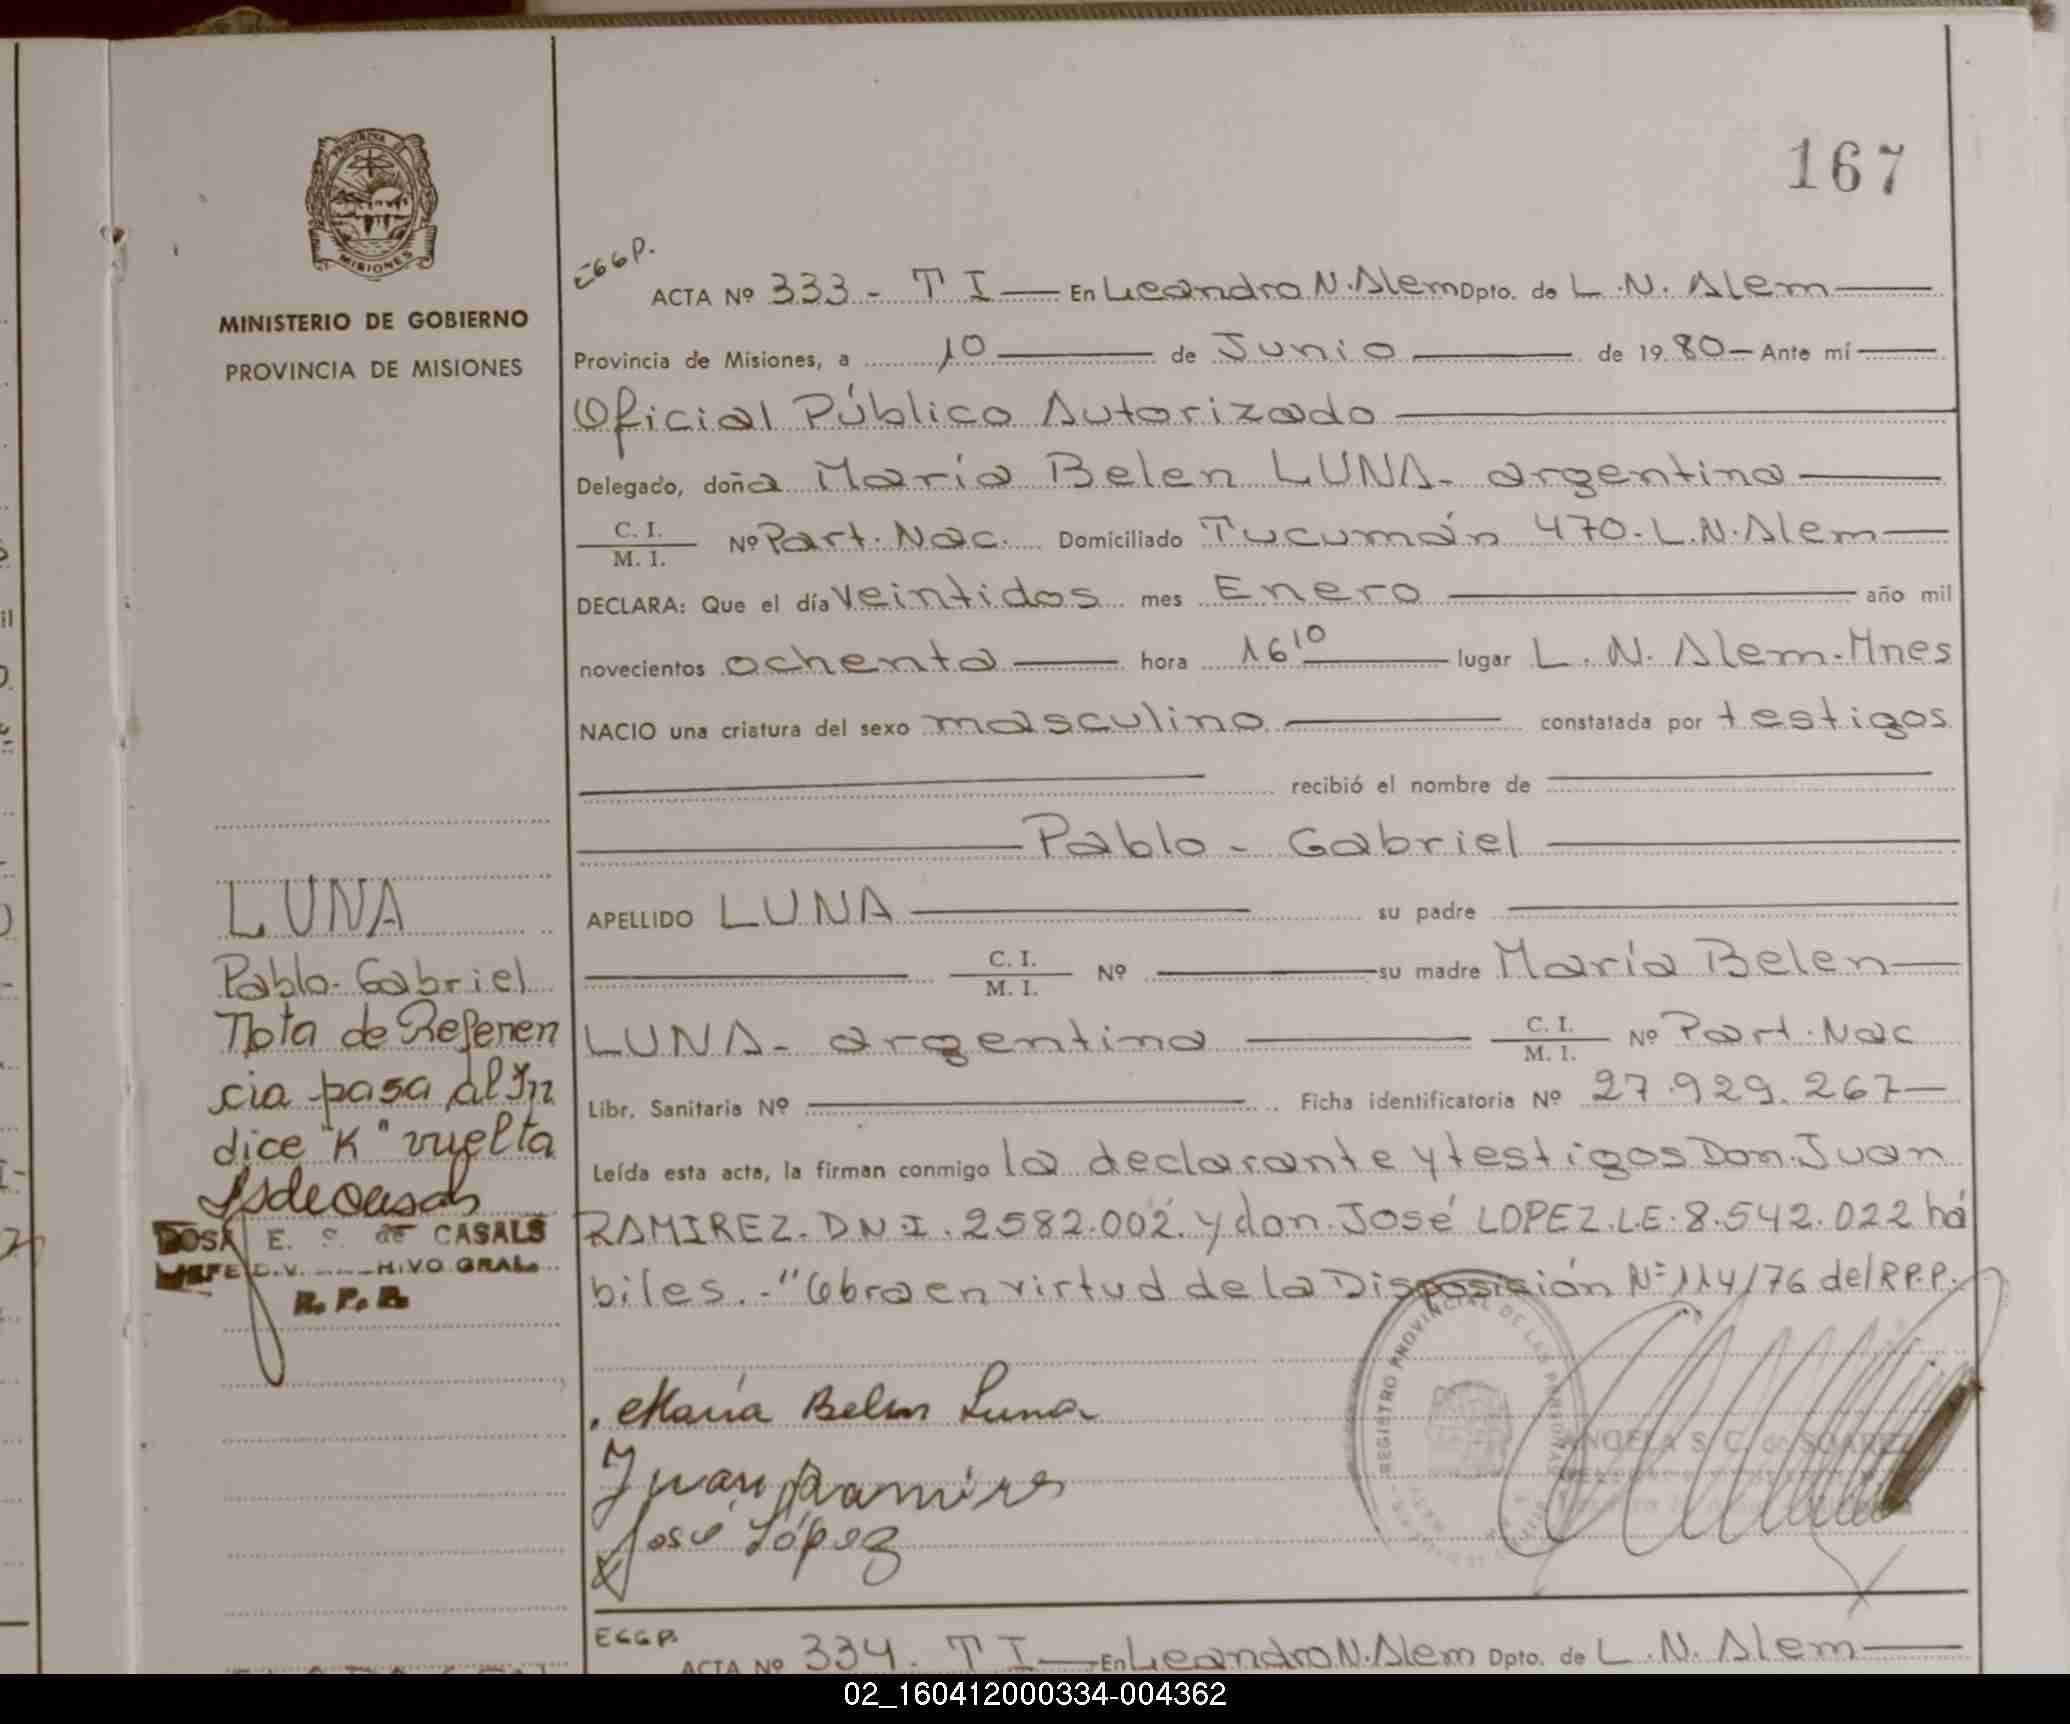 167
MISIONES
MINISTERIO DE GOBIERNO
PROVINCIA DE MISIONES
EGGP.
ACTA Nº 333 - T I — En Leandro N. Alem Dpto. de L. N. Alem —
Provincia de Misiones, a 10 — de Junio — de 1980 — Ante mí —
Oficial Público Autorizado —
Delegado, doña María Belen LUNA - argentina —
C. I.
M. I. Nº Part. Nac. Domiciliado Tucumán 470 - L. N. Alem —
DECLARA: Que el día veintidos mes Enero — año mil
novecientos ochenta — hora 16 10 — lugar L. N. Alem - Mnes
NACIO una criatura del sexo masculino — constatada por testigos
— recibió el nombre de —
— Pablo - Gabriel —
APELLIDO LUNA — su padre —
— C. I.
M. I. Nº — su madre María Belen —
LUNA - argentina — C. I.
M. I. Nº Part. Nac
Libr. Sanitaria Nº — Ficha identificatoria Nº 27.929.267 —
Leída esta acta, la firman conmigo la declarante y testigos Don Juan
RAMIREZ. D.N.I. 2582.002. y don José LOPEZ. L.E. 8.542.022 há
biles. - "Obra en virtud de la Disposición Nº 114/76 del R.P.P.
María Belen Luna
Juan Ramirez
José López
REGISTRO PROVINCIAL DE LAS PERSONAS
ANGELA S. C. de SOAREZ
LUNA
Pablo - Gabriel
Nota de Referen
cia pasa al Ín
dice "K" vuelta
E. S. de CASALS
R. P. P.
EGGP.
ACTA Nº 334 - T I — En Leandro N. Alem Dpto. de L. N. Alem —
02_160412000334-004362